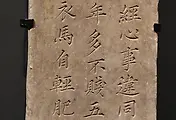 經心事違同
年多不賤五
衣馬自輕肥